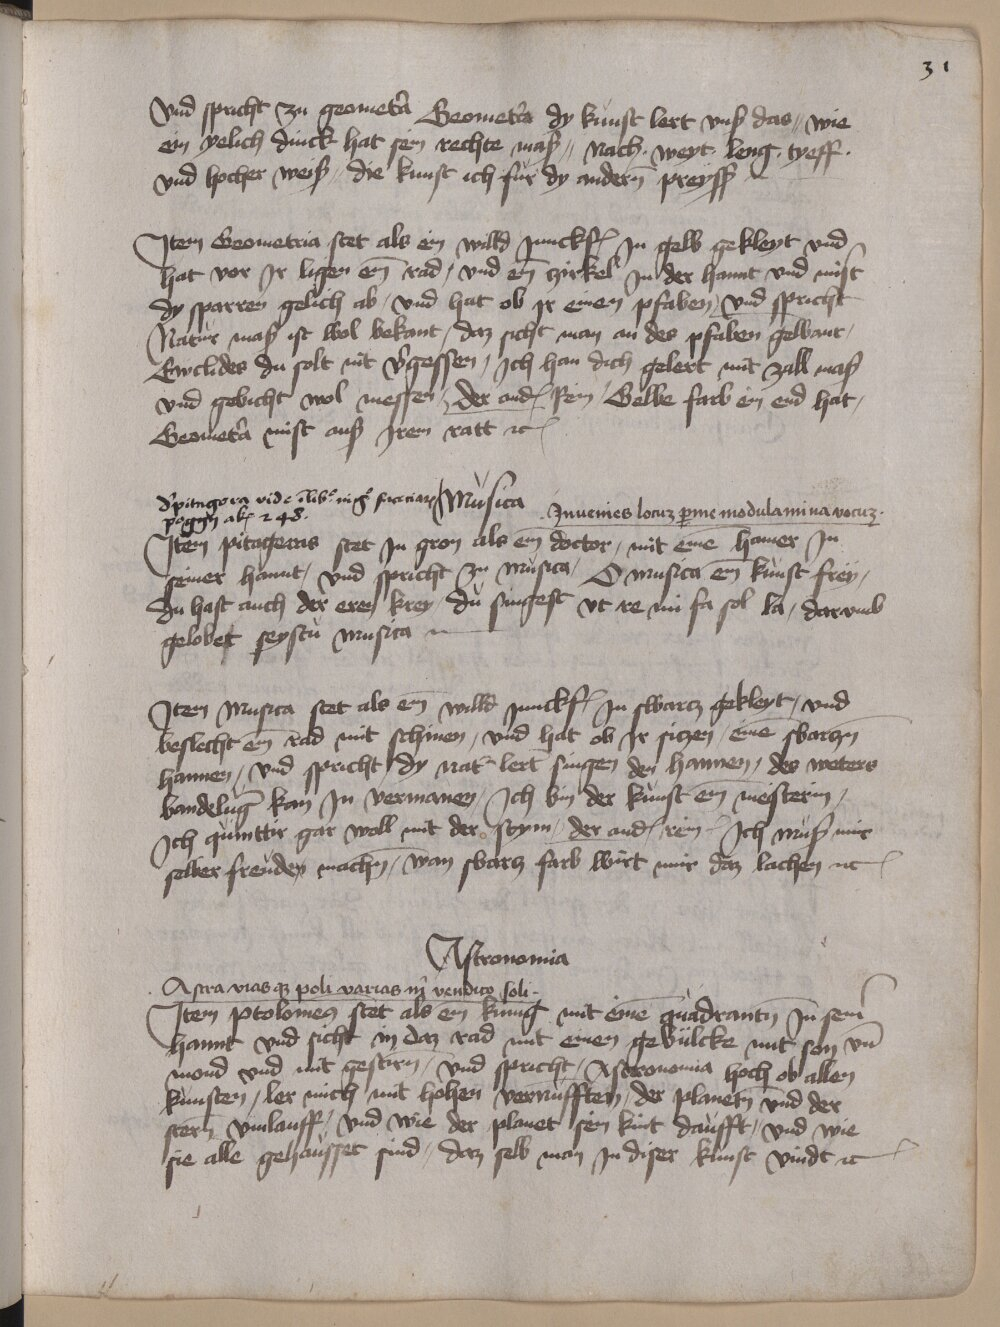 31
Vnd spricht zu geomet'a Geomet'a dy kunst lert vnß das // wie
ein yelich dinck hat sein rechte maß // Nach . weyt . leng . tyeff .
vnd hocher weiß // die kunst ich für dy andern preyß
Item Geometria stet als ein willd junckf In gelb gekleyt vnd
hat vor Ir ligen ein rad / vnd ein zirkel In der hannt vnd mist
dy sparren gelich ab / vnd hat ob Ir einen pfaben / vnd spricht
Natur maß ist wol bekant / daz sicht man an des pfaben gewant /
Ewclides du solt nit v'gessen / Ich han dich gelert mit zall maß
vnd gewicht wol messen / der and Rein / Gelbe farb ein end hat /
Geomet'a mist auß Irem ratt ꝛc
Musica
Inuenies locuz per me modulamina vocuz .
Item pitageras stet In gron als ein doctor / mit eine hamer In
seiner hannt / vnd spricht zu Musica / O musica ein kunst frey /
du hast auch der eren krey / du singest vt re mi fa sol la / darumb
gelobet seystu Musica
Item Musica stet als ein willd junckf In swarcz gekleyt / vnd
beslecht ein rad mit schinen / vnd hat ob Ir siczen / eine swarczn
hannen / vnd spricht / dy nat' lert singen den hannen / des weters
wandelung kan In vermanen / Ich bin der kunst ein meisterin /
Ich quinttir gar woll mit der stym / der and rein / Ich muß mir
selber freuden machn / wan swarcz farb wirt mir daz lachen ꝛc
Astronomia
. Astra viasqz poli varias m' vendico soli .
Item ptolomeus stet als ein kunig mit eine quadrantn In seinr
hannt vnd sicht in daz rad mit einen gewülcke mit son vn
mond vnd mit gestirn / vnd spricht / Astronomia hoch ob allen
kunsten / ler mich mit hohen vernufften / der planetn vnd der
stern vmlauff / vnd wie der planet sein kint daufft / vnd wie
sie alle gehausset sind / daz selb man In diser kunst vindt ꝛc